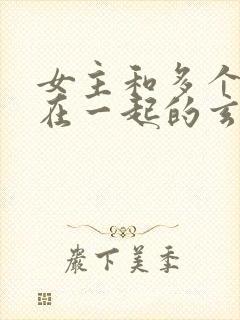 女主和多个
在一起的玄
嚴下美季